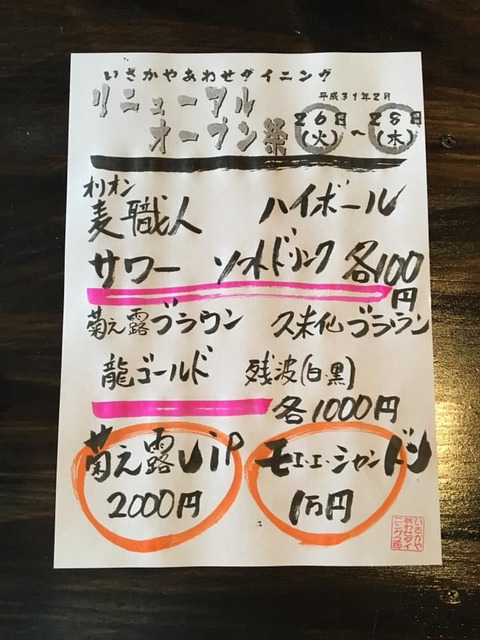 いさかやあわせダイニング
平成31年2月
リニューアル
オープン祭
26日(火)～28日(木)
オリオン
麦職人 ハイボール
サワー ソフトドリンク 各100円
菊之露ブラウン 久米仙ブラウン
龍ゴールド 残波(白黒)
各1000円
菊之露VIP モエ・エ・シャンドン
2000円 1万円
いさかや
あわせダイ
ニング